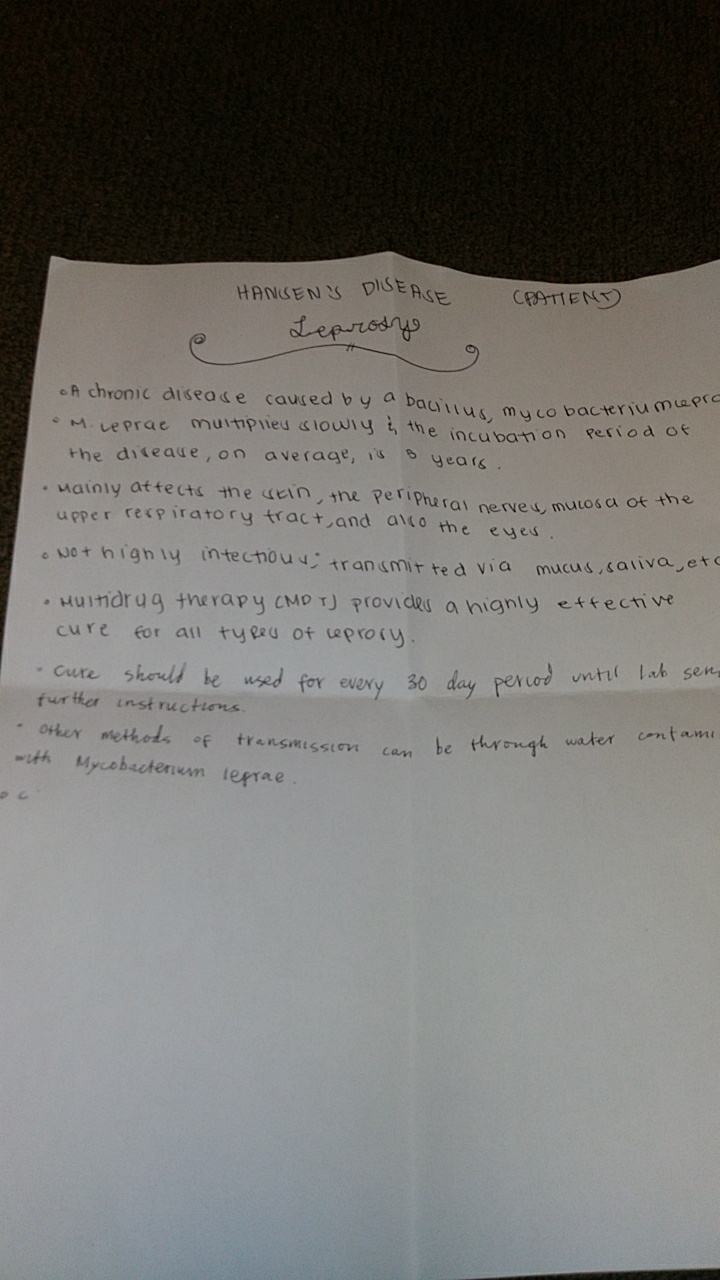 HANSEN'S DISEASE (PATIENT)
Leprosy
• A chronic disease caused by a bacillus, mycobacterium lepra
• M. leprae multiplies slowly & the incubation period of
the disease, on average, is 5 years.
• Mainly affects the skin, the peripheral nerves, mucosa of the
upper respiratory tract, and also the eyes.
• Not highly infectious; transmitted via mucus, saliva, etc
• Multidrug therapy (MDT) provides a highly effective
cure for all types of leprosy.
• Cure should be used for every 30 day period until lab sen
further instructions.
• Other methods of transmission can be through water contami
with Mycobacterium leprae.
• c